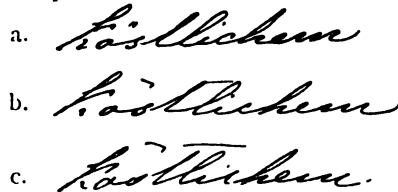 a. köstlichem
b. köstlichem
c. köstlichem.